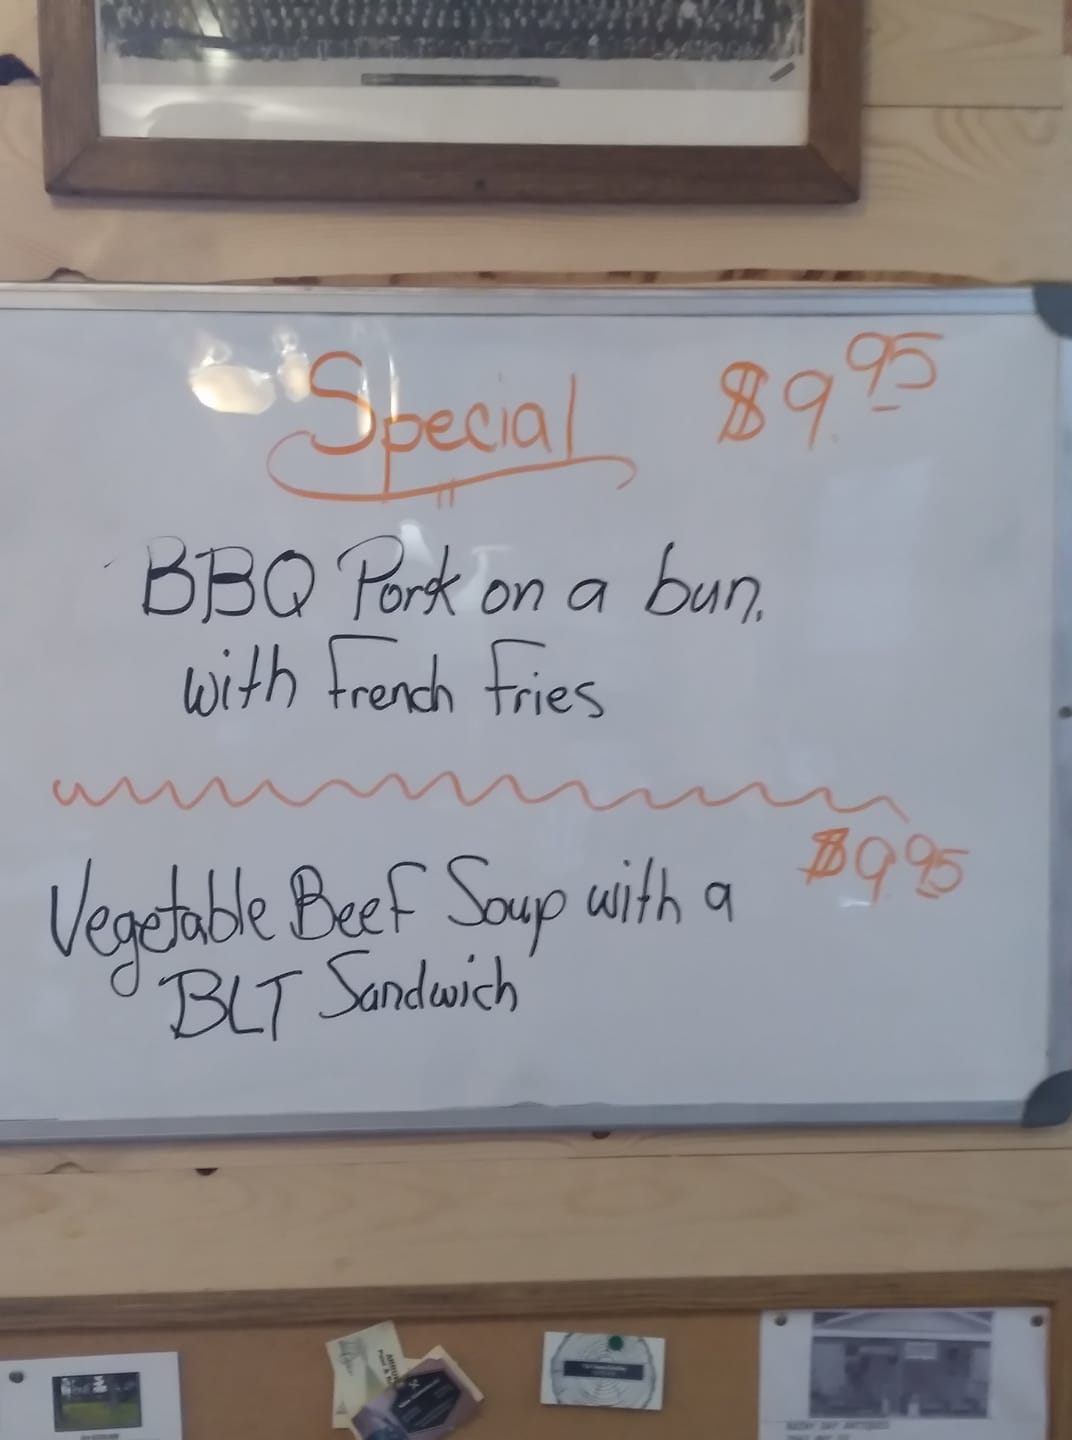 Special $9.95
BBQ Pork on a bun.
with French Fries
$9.95
Vegetable Beef Soup with a
BLT Sandwich